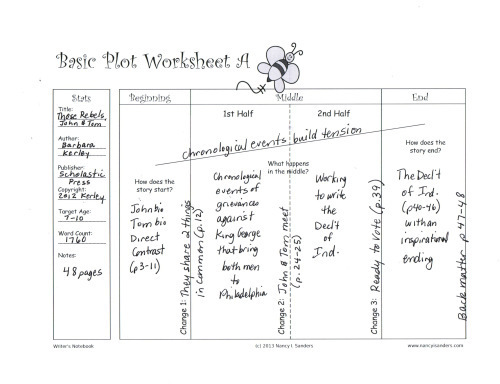 Basic Plot Worksheet A
Stats
Title:
Those Rebels,
John & Tom
Author:
Barbara
Kerley
Publisher:
Scholastic
Press
Copyright:
2012 Kerley
Target Age:
7-10
Word Count:
1760
Notes:
48 pages
Beginning
Middle
End
1st Half
2nd Half
chronological events build tension
How does the
story start?
John bio
Tom bio
Direct
Contrast
(p3-11)
Change 1: They share 2 things
in common (p.12)
What happens
in the middle?
Chronological
events of
grievances
against
King George
that bring
both men
to
Philadelphia
Change 2: John & Tom meet
(p.24-25)
Working
to write
the
Decl't
of
Ind.
Change 3: Ready to Vote (p.39)
How does the
story end?
The Decl't
of Ind.
(p40-46)
with an
inspirational
ending
Back matter p 47-48
Writer's Notebook
(c) 2013 Nancy I. Sanders
www.nancyisanders.com